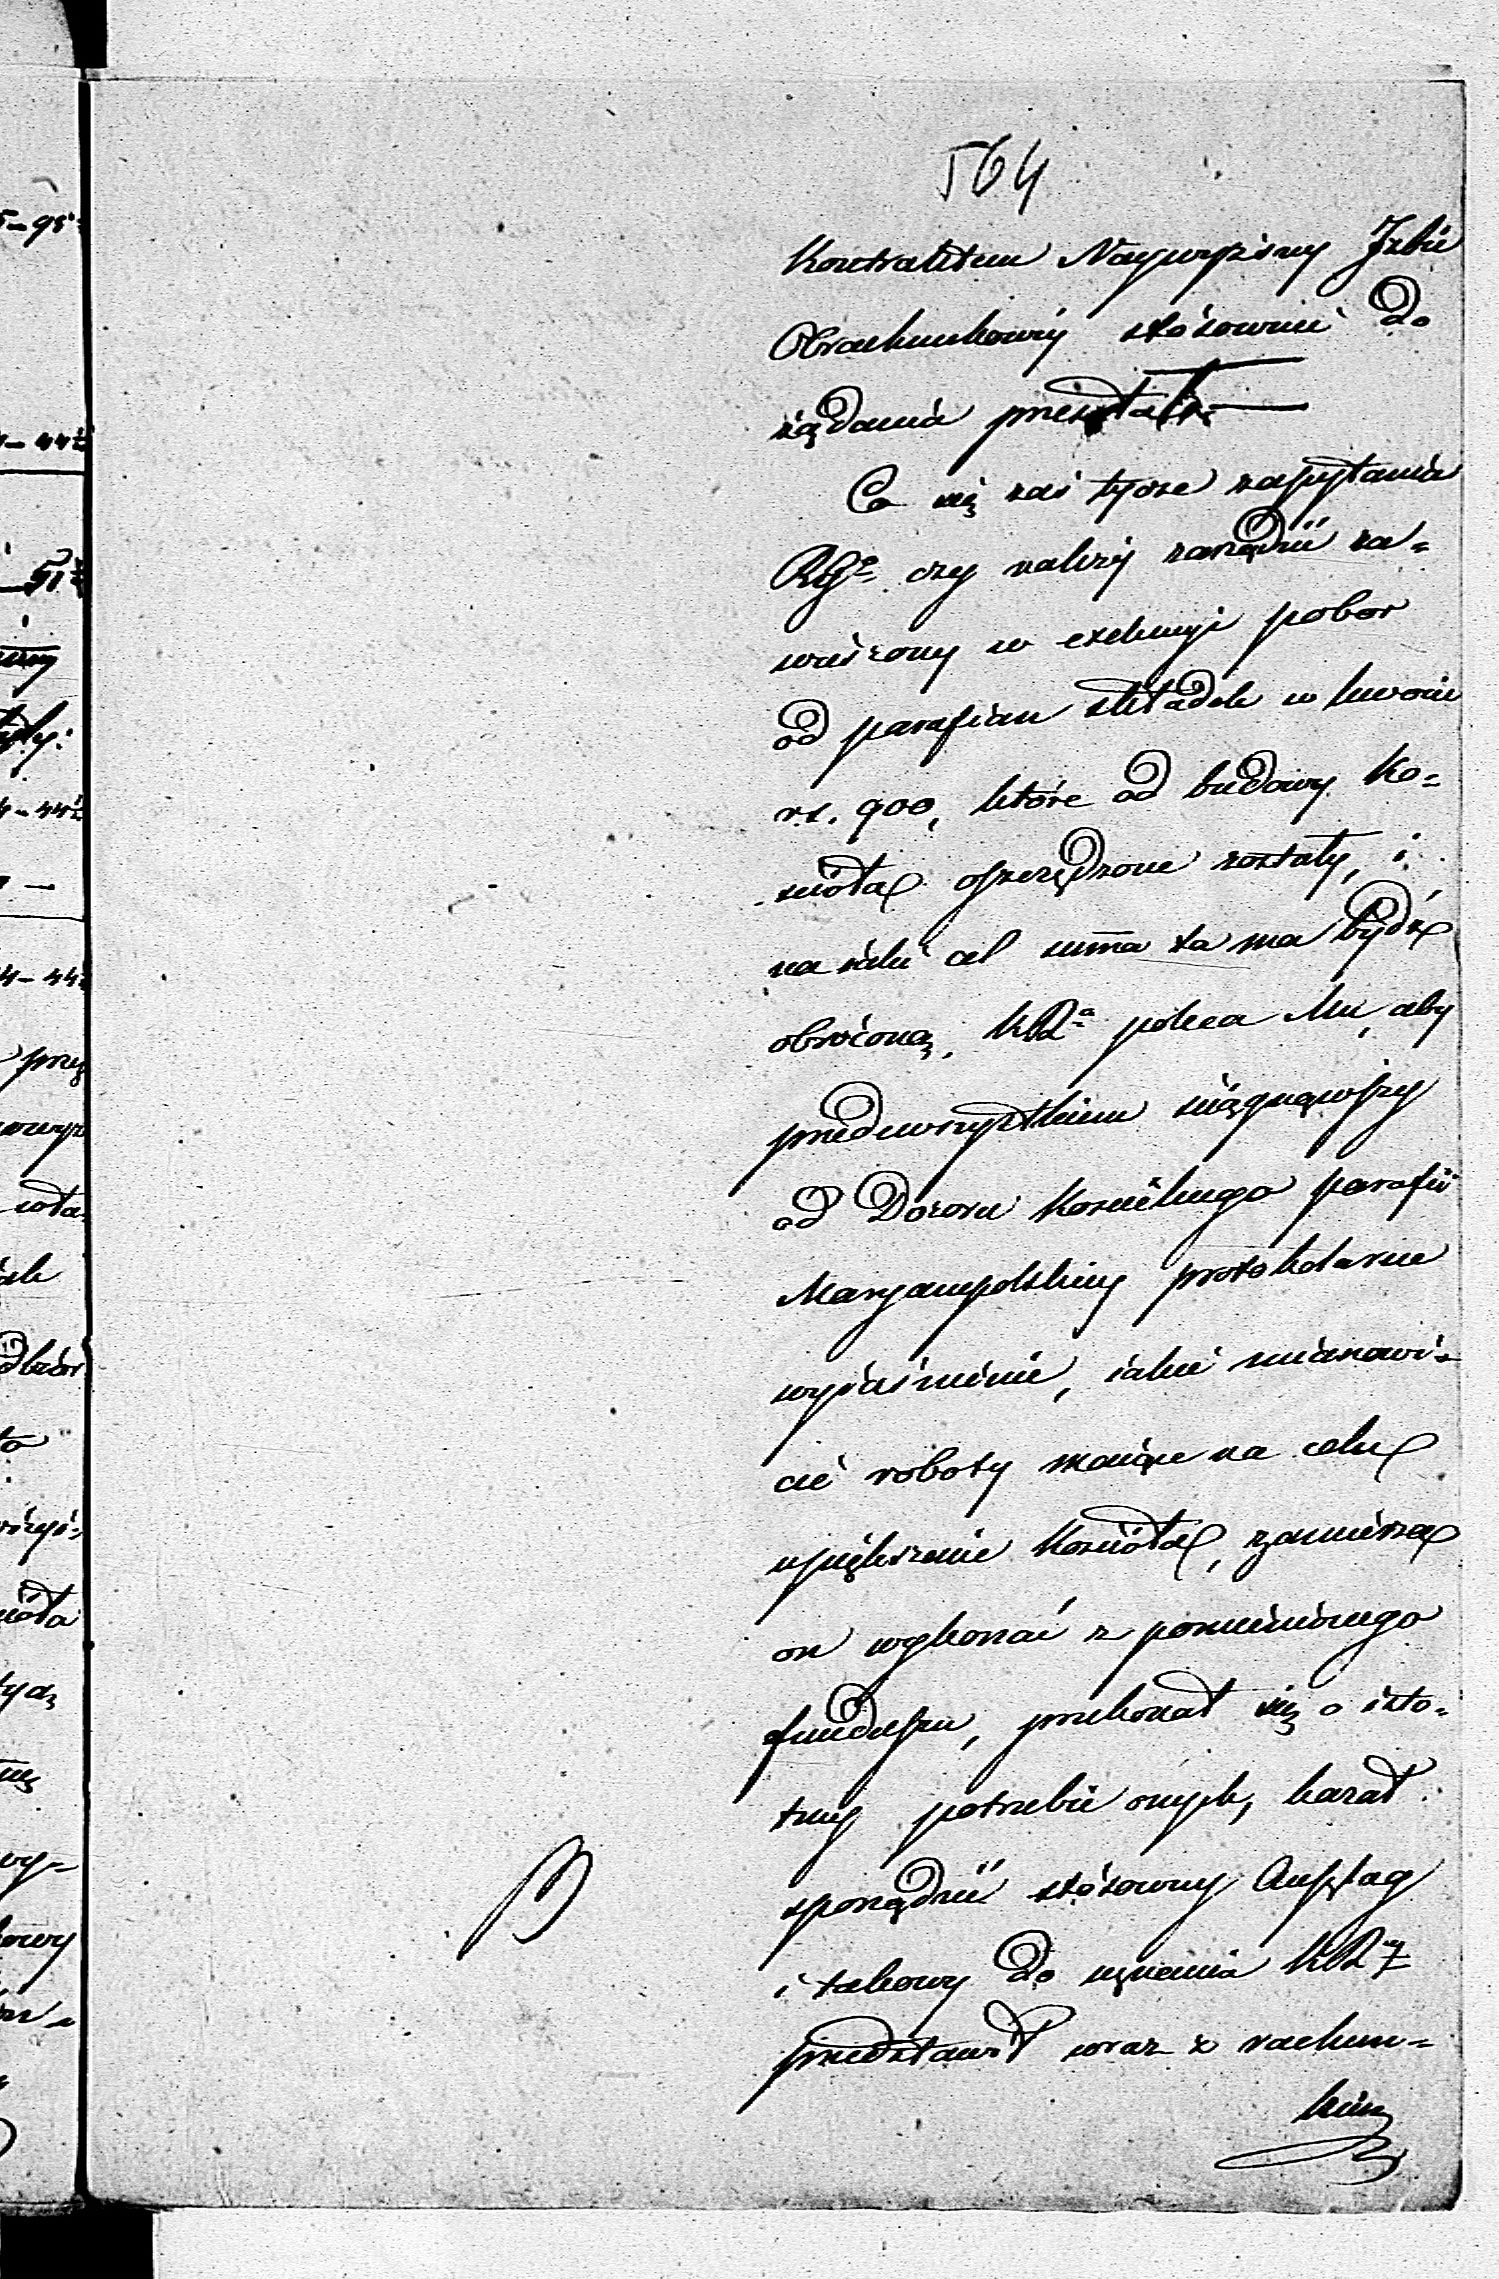 564
Kontraktem Naywyższey Izbie
Obrachunkowéy stósownie do
żądania przesłał.
Co się zaś tycze zapytania
RGo czy należy zarządzić za-
wieszony w exekucyi pobor
od parafian składek w kwocie
r.s. 900, które od budowy Ko-
ścioła oszczędzone zostały, i
na iaki cel summa ta ma bydź
obróconą, KRa poleca Mu, aby
przedewszystkiem ściągnąwszy
od Dozoru Kościelnego parafii
Maryampolskiey protokolarne
wyiaśnienie, iakie mianowi-
cie roboty maiące na celu
upiększenie Kościoła, zamierza
on wykonać z pomienionego
funduszu, przekonał się o isto-
tney potrzebie onych, kazał
sporządzić stósowny Anszlag
i takowy do uznania KRey
przedstawił wraz z rachun-
kiem
95
44
51
44
44
przy